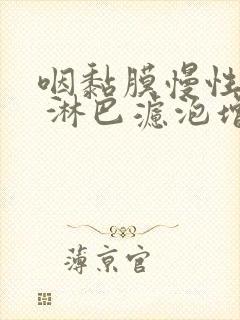 咽黏膜慢性
淋巴滤泡增
薄京官